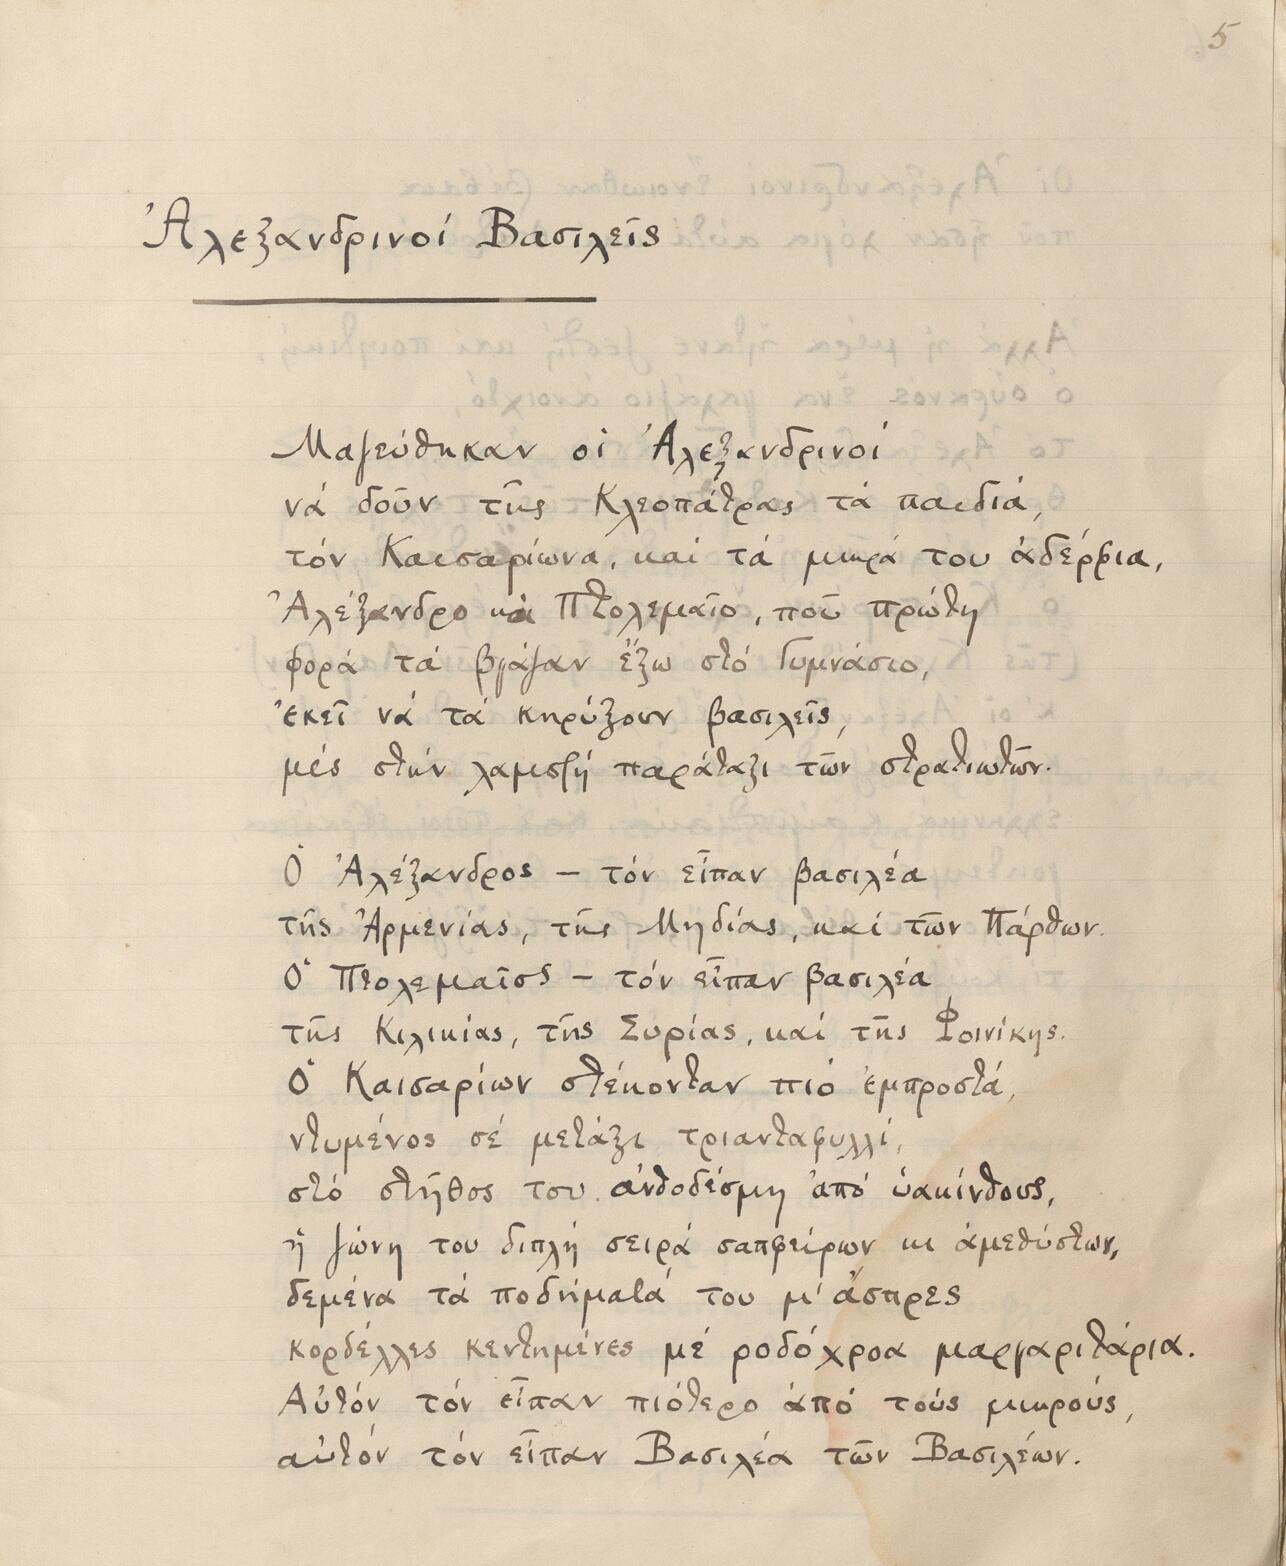 5
Ἀλεξανδρινοί Βασιλεῖς
Μαζεύθηκαν οἱ Ἀλεξανδρινοί
νά δοῦν τῆς Κλεοπάτρας τά παιδιά,
τόν Καισαρίωνα, καί τά μικρά του ἀδέρφια,
Ἀλέξανδρο καί Πτολεμαῖο, πού πρώτη
φορά τά βγάζαν ἔξω στό Γυμνάσιο,
ἐκεῖ νά τά κηρύξουν βασιλεῖς,
μές στήν λαμπρή παράταξι τῶν στρατιωτῶν.
Ὁ Ἀλέξανδρος – τόν εἶπαν βασιλέα
τῆς Ἀρμενίας, τῆς Μηδίας, καί τῶν Πάρθων.
Ὁ Πτολεμαῖος – τόν εἶπαν βασιλέα
τῆς Κιλικίας, τῆς Συρίας, καί τῆς Φοινίκης.
Ὁ Καισαρίων στέκονταν πιό ἐμπροστά,
ντυμένος σέ μετάξι τριανταφυλλί,
στό στῆθος του ἀνθοδέσμη ἀπό ὑακίνθους,
ἡ ζώνη του διπλή σειρά σαπφείρων κι ἀμεθύστων,
δεμένα τά ποδήματά του μ' ἄσπρες
κορδέλλες κεντημένες μέ ροδόχροα μαργαριτάρια.
Αὐτόν τόν εἶπαν πιότερο ἀπό τούς μικρούς,
αὐτόν τόν εἶπαν Βασιλέα τῶν Βασιλέων.